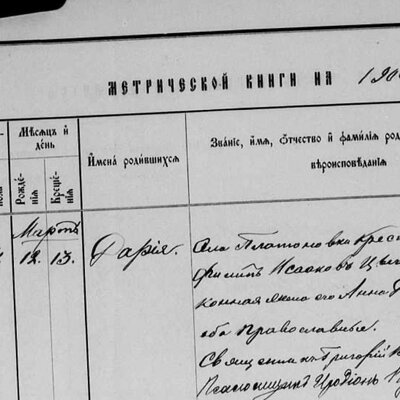 МЕТРИЧЕСКОЙ КНИГИ НА 190
Мѣсяцъ и день
Рожденія
Крещенія
Имена родившихся
Званіе, имя, отчество и фамилія
вѣроисповѣданія
Мартъ
12. 13.
Дарія.
Села Платоновки
Филипъ Исааковъ
конная жена его Анна
оба Православные.
Священникъ Григорій
Псаломщикъ Иродіонъ